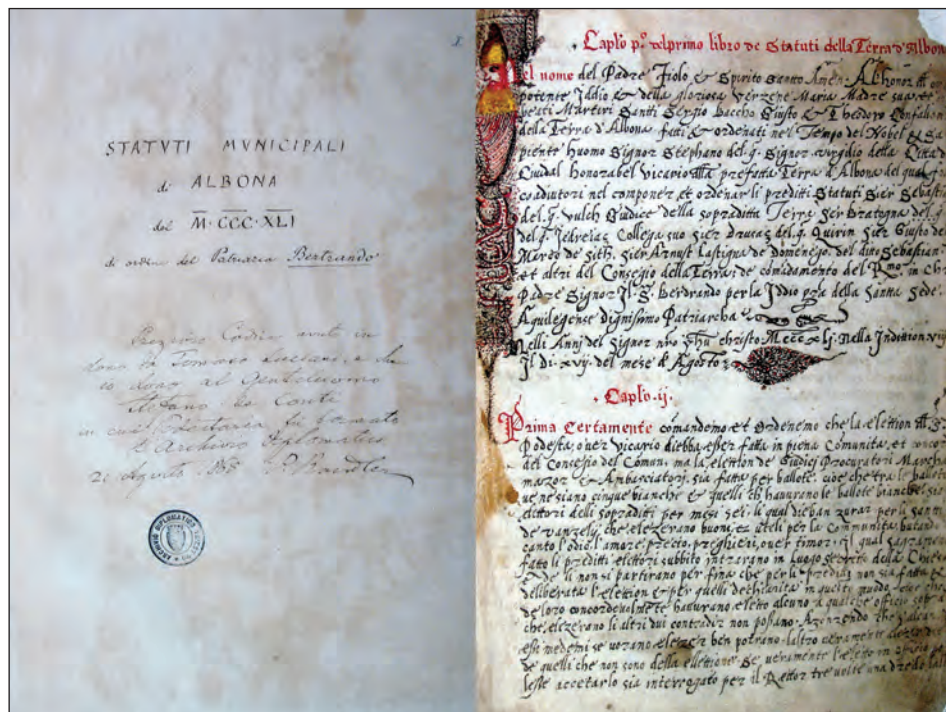 1.
STATVTI MVNICIPALI
di ALBONA
del M·CCC·XLI
di ordine del Patriarca Bertrando
Prezioso Codice avuto in
dono da Tommaso Luciani e che
io dono al Gentiluomo
Stefano de Conti
in cui Esectanza fu formato
l'Archivio Diplomatico
2 Agosto 1868 P. Kandler
ARCHIVIO DIPLOMATICO
Caplo pº del primo libro de Statuti della Terra d'Albon
el nome del Padre Fiolo, & Spirito Santo Amen. Al honor
potente Iddio & della gloriosa Verzene Maria Madre sua, et
beati Martiri Santti Sergio Baccho Giusto & Theodoro Confalon
della Terra d'Albona fatti & ordenati nel Tempo del Nobel & Sa
piente huomo Signor Stephano del q. Signor Virgilio della Citta de
Cividal honorabel Vicario alla prefatta Terra d'Albona del qual
coadiutori nel componer, et ordenar li preditti Statuti Sier Sebastia
del q. vulch Giudice della sopraditta Terra Ser Bratogna del q.
del q. Iedreias Collega suo Sier drucas del q. Quirin Sier Giusto del
Merco de Sith, Sier Arnust Castigna de Domenego, del ditto Sebastian
et altri del Consegio della Terra: de comandamento del Rmo. in Chr
Padre Signor Il S. Berdrando per la Iddio gra della Santta Sede
Aquilegense dignissimo Patriarcha
Nelli Anni del Signor nro Jhu christo. Mcccxlj. Nella Indition
Il Di. xvij. del mese d'Agosto
Caplo. ij.
Prima Certamente comandemo et Ordenemo che la elettion
Podesta, over Vicario diebba esser fatta in piena Comunita, et
del Consegio del Comun, ma la elettion de Giudici Procuratori
mazor & Ambasciatori, sia fatta per ballote, cioe che tra le ballote
ve ne siano cinque bianche & quelli ch haverano le ballote bianche, sia
elettori delli sopraditti per mesi sei: li qual dieban zurar per li santti
de vanzely, che elezerano buoni, et uteli per la Comunita, butando
canto l'odio, l'amore, precto, preghieri, over timor: Il qual sagramento
fatto li preditti elettori subbito intrarano in Luogo secreto della
& de li non si partirano per fina che per li predittj non sia fatta
deliberata l'elettion & per quelli dechiarita in questo modo,
de loro concordevolmente haverano eletto alcuno a qualche officio
che elezerano li altri dui contradir non possano. Azonzendo che
essi medemi se vorano elezer ben potrano. l'altro veramente
de quelli che non sono della ellettione. Se veramente l'eletto in
lesse accetarlo sia interrogato per il Rettor tre volte